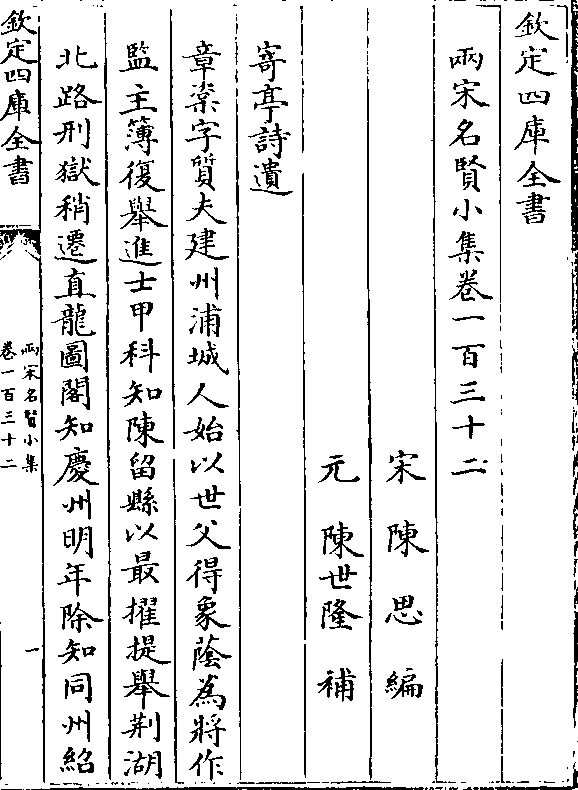 欽定四庫全書
兩宋名賢小集卷一百三十二
宋 陳思 編
元 陳世隆 補
寄亭詩遺
章楶字質夫建州浦城人始以世父得象蔭為將作
監主簿復舉進士甲科知陳留縣以最擢提舉荆湖
北路刑獄稍遷直龍圖閣知慶州明年除知同州紹
欽定四庫全書
兩宋名賢小集
卷一百三十二
一